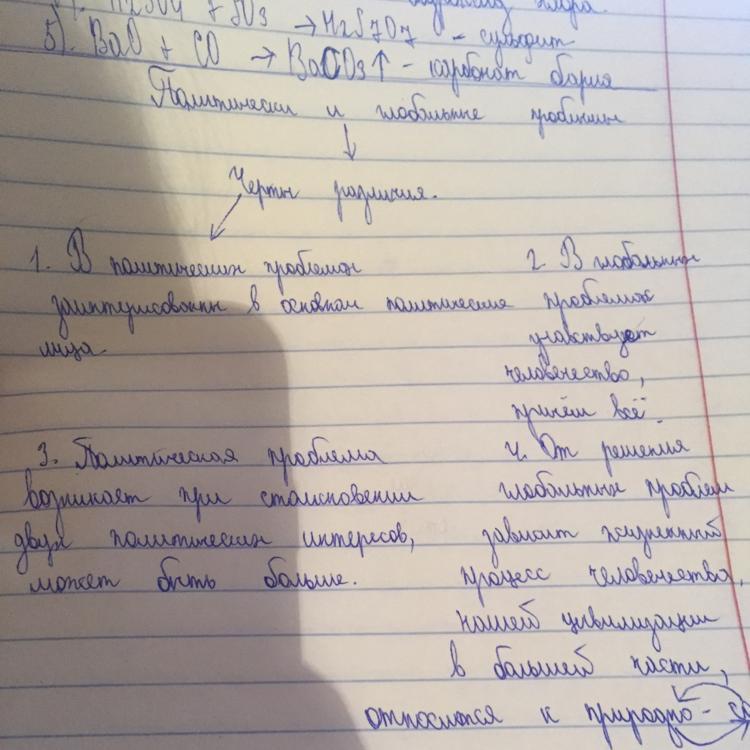 H2SO4 + SO3 → H2S2O7 -
5). BaO + CO → BaCO3↑ - карбонат бария
Политически и глобальные проблемы
↓
Черты различия.
1. В политических проблемах
заинтересованы в основном политические
лица.
2. В глобальных
проблемах
учавствует
человечество,
причём всё.
3. Политическая проблема
возникает при столкновении
двух политических интересов,
может быть больше.
4. От решения
глобальных проблем
зависит жизненный
процесс человечества,
нашей цивилизации
в большей части,
относится к природно-